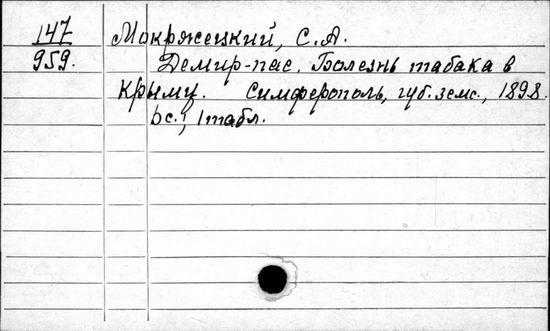 147 Мокржецкий, С.А.
959. Демир-пас. Болезнь табака в
Крыму. Симферополь, губ. земс., 1898.
6с., 1 табл.